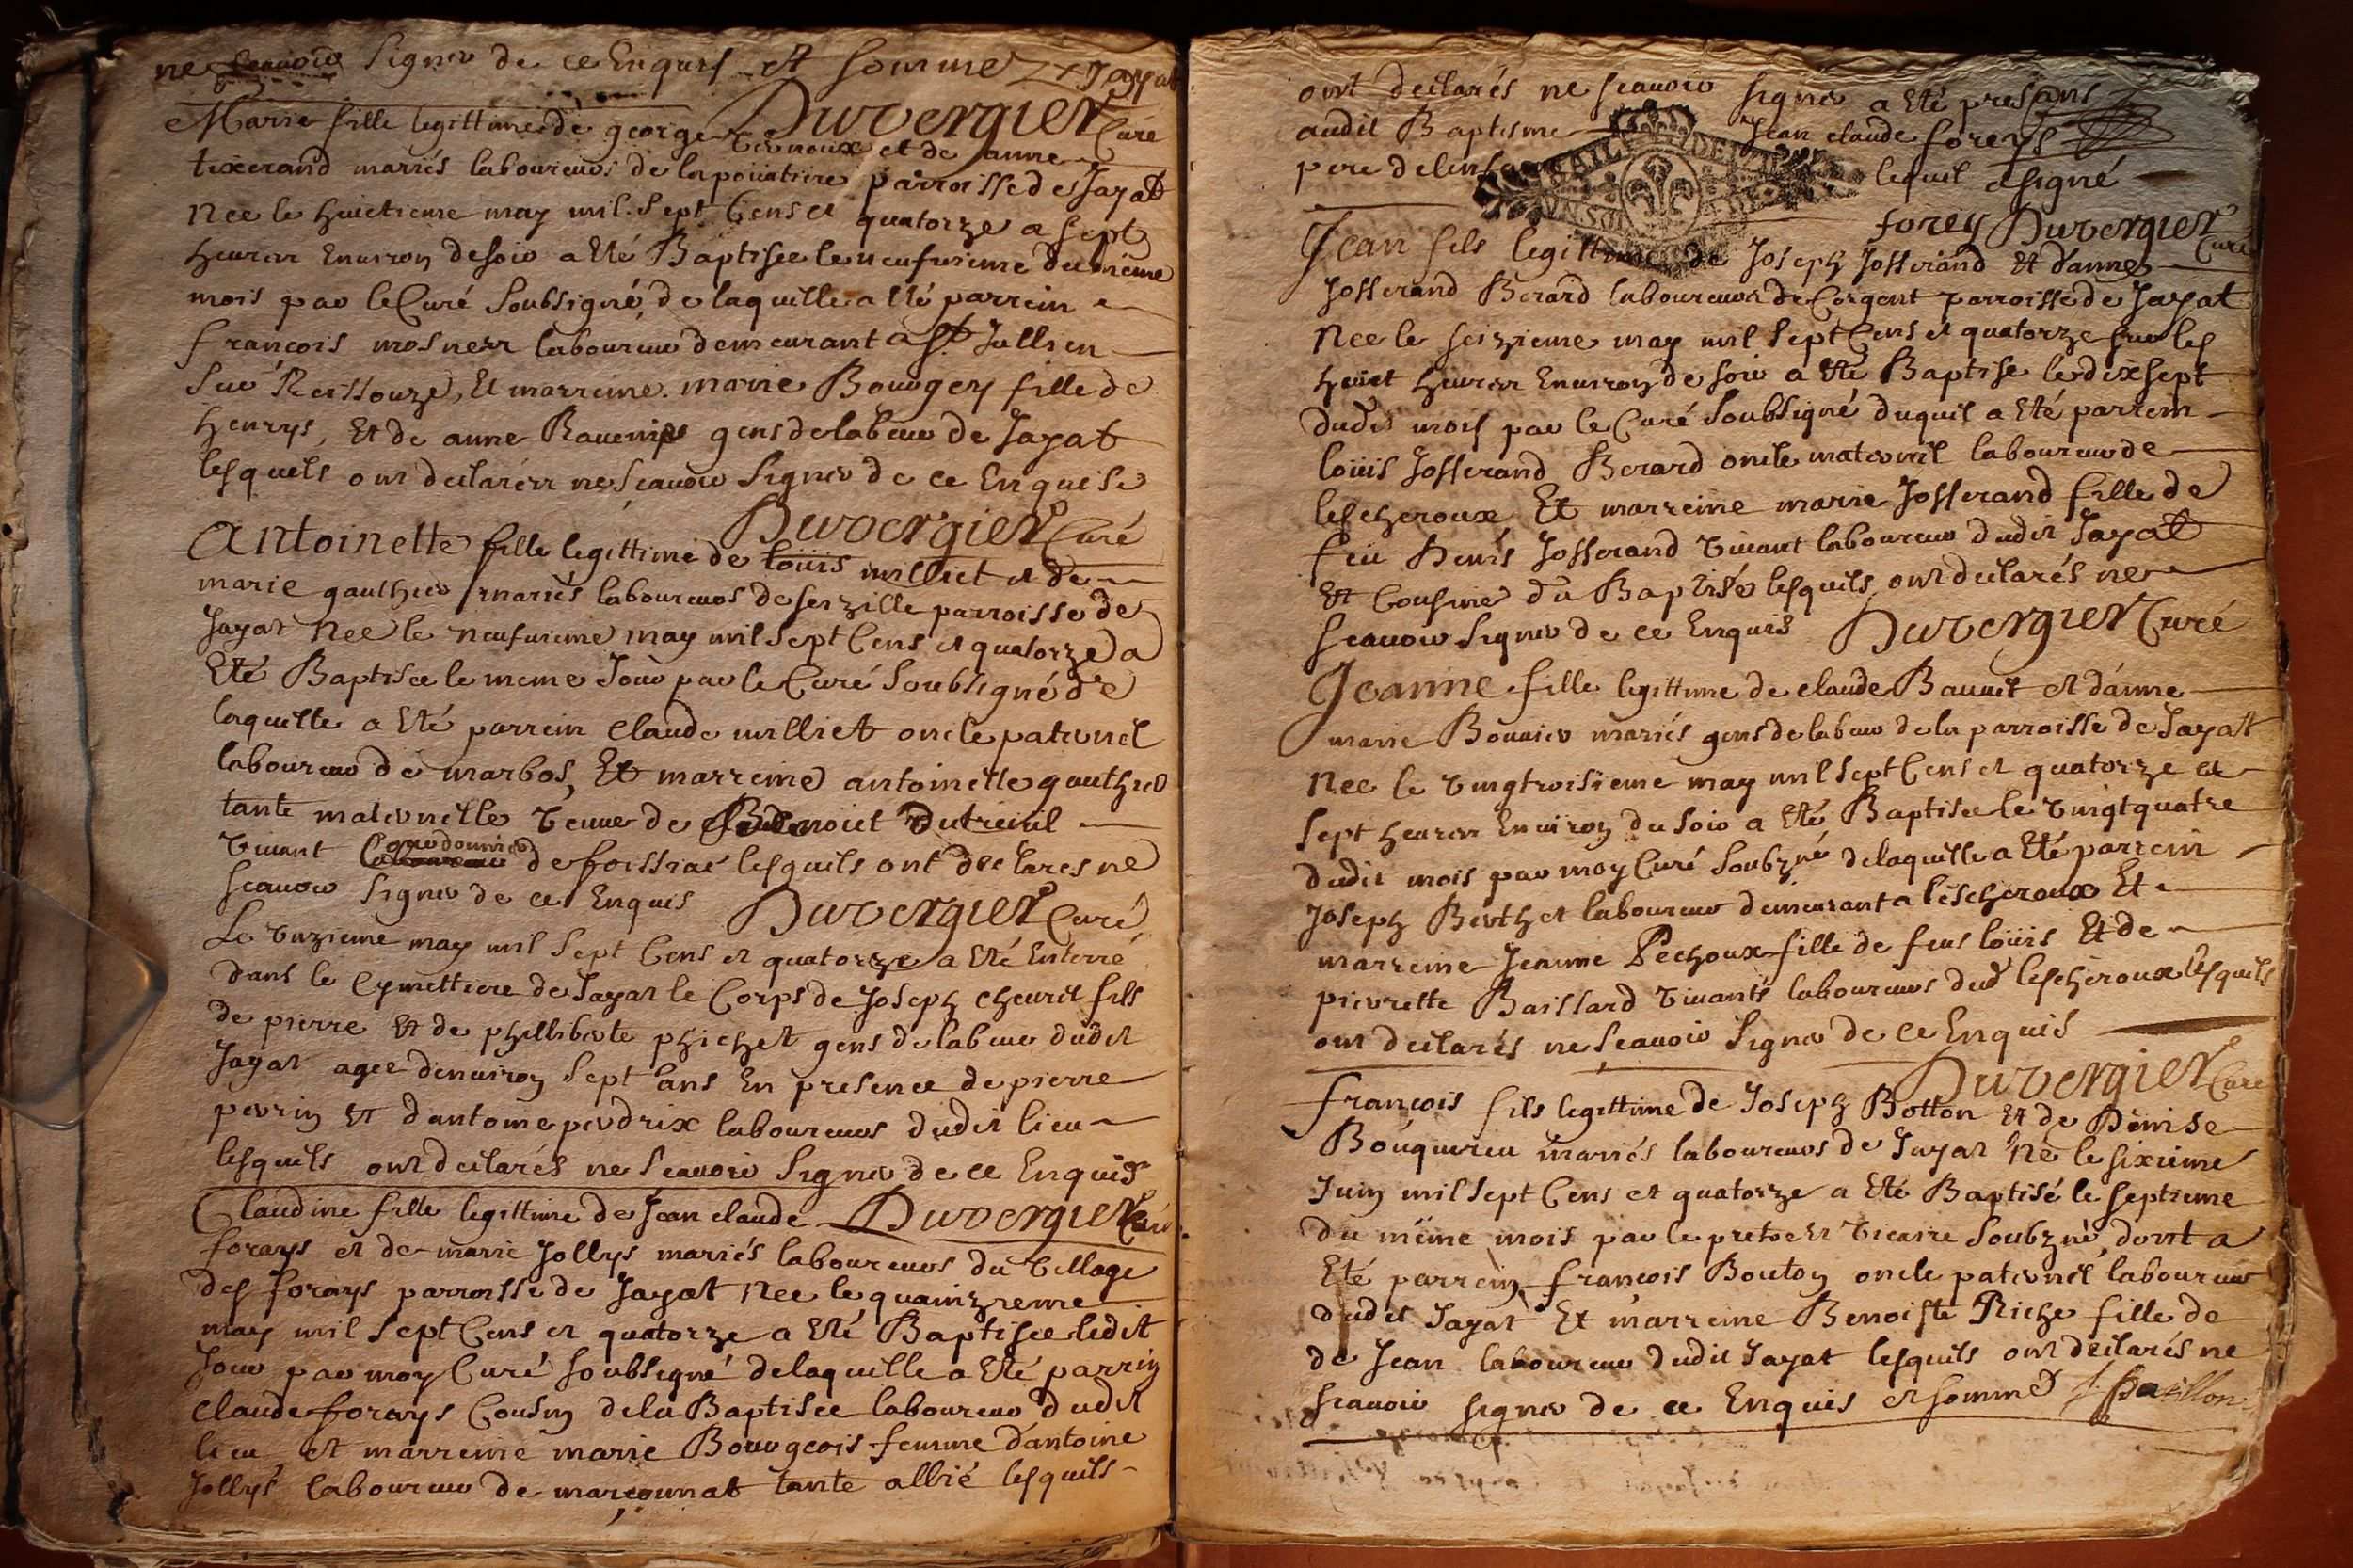 ne scavoir signer de ce Enquis et sommez Jayat
Duvergier Curé
Marie fille legittime de george vernoux et de anne
tixerand mariés laboureurs de la poüatiere parroisse de Jayat
Nee le huictieme may mil sept Cens et quatorze a sept
heures Environ de soir a Eté Baptisee le neufvieme du mème
mois par le Curé Soubsigné, de laquelle a Eté parrein
françois mosnerr laboureur demeurant a St Jullien
sur Reissouze, Et marreine marie Bourgey fille de
henrys, Et de anne Ravenips gens de labeur de Jayat
lesquels ont declarérr ne Scavoir Signer de ce Enquise
Duvergier Curé
Antoinette fille legittime de loüis milliet et de
marie gauthier mariés laboureurs de serzille parroisse de
Jayat Nee le neufvieme may mil sept Cens et quatorze a
Eté Baptisee le meme Jour par le Curé Soubsigné de
laquelle a Eté parrein Claude milliet oncle paternel
laboureur de marbos, Et marreine antoinette gauthier
tante maternelle veuve de Benoict Dutreuil
vivant Courdounier de foissiat lesquels ont declares ne
scavoir signer de ce Enquis Duvergier Curé
Le unzieme may mil sept Cens et quatorze a Eté Enterré
dans le Cymettiere de Jayat le Corps de Joseph chevrit fils
de pierre Et de phillibvete phichet gens de labeur dudit
Jayat agee denviron sept ans En presence de pierre
pevrin Et d'antoine pevdrix laboureurs dudit lieu
lesquels ont declarés ne scavoir Signer de ce Enquis
Claudine fille legittime de Jean claude Duvergier Curé
forays et de marie Jollys mariés laboureurs du village
des forays parroisse de Jayat Nee le quainzieme
may mil sept Cens et quatorze a Eté Baptisee ledit
Jour par moy Curé soubsigné delaquelle a Eté parrin
claude forays Cousin dela Baptisee laboureur dudit
lieu, et marreine marie Bourgeois femme d'antoine
Jollys laboureur de marçounat tante allié lesquels
ont declarés ne scavoir signer a Eté presans
audit Baptisme Jean claude foreys
pere delenfa lequel a signé
forey Duvergier Curé
Jean fils legittime de Joseph Josserand Et d'anne
Josserand Berard laboureurs de Corgent parroisse de Jayat
Nee le seizieme may mil sept Cens et quatorze sur les
heüet heures Environ de soir a Eté Baptise le dixsept
dudit mois par le Curé Soubsigné duquel a Eté parrein
loüis Josserand Berard oncle maternel laboureur de
lescheroux Et marreine marie Josserand fille de
feü Denis Josserand vivant laboureur dudit Jayat
Et Cousine du Baptisé lesquels ont declarés ne
scavoir signer de ce Enquis Duvergier Curé
Jeanne fille legittime de claude Bauuit et d'anne
marie Bouvier mariés gens de labeur de la parroisse de Jayat
Nee le vingtroisieme may mil sept Cens et quatorze a
sept heures Environ du soir a Eté Baptisee le vingtquatre
dudit mois par moy Curé soubzné delaquelle a Eté parrein
Joseph Berthet laboureur demeurant a lescheroux Et
marreine Jeanne Pechoux fille de feus loüis Et de
pierrette Baissard vivants laboureurs dud lescheroux lesquels
ont declarés ne scavoir Signer de ce Enquis
Duvergier Curé
françois fils legittime de Joseph Botton Et de Denise
Bouquereu mariés laboureurs de Jayat Né le sixieme
Juin mil sept Cens et quatorze a Eté Baptisé le septieme
du même mois par le pretre et vicaire soubzné, dont a
Eté parrein françois Bouton oncle paternel laboureur
dudit Jayat Et marreine Benoiste Riche fille de
de Jean laboureur dudit Jayat lesquels ont declarés ne
scavoir signer de ce Enquis et sommé f. pavillon